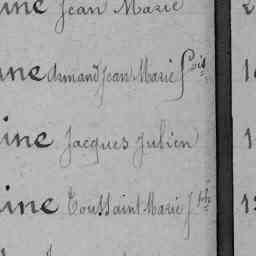 ine Jean Marie 2
ine Armand Jean Marie fois 1
ine Jacques Julien 1
ine Toussaint Marie Jph 1